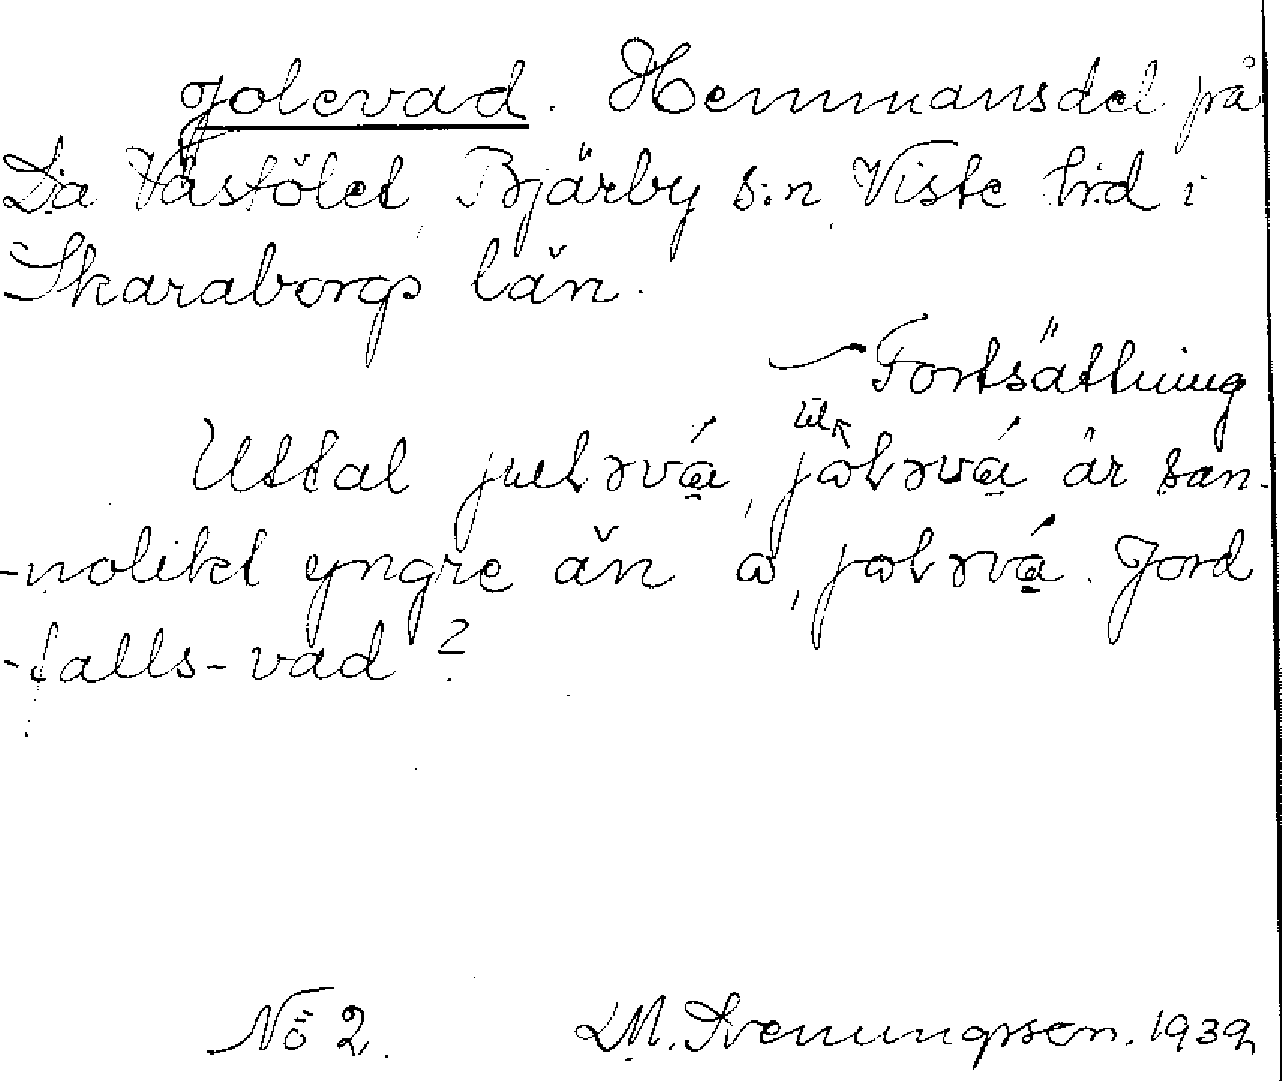 Jolevad. Hemmansdel på
Lia Västölet, Bjärby s:n, Viste hd i
Skaraborgs län.
Fortsättning
Uttal julɘvá, jɷlɘvá är san-
-nolikt yngre än ɷ, jɷlɘvá. Jord
-falls-vad?
No 2. LM. Svenungsson. 1939